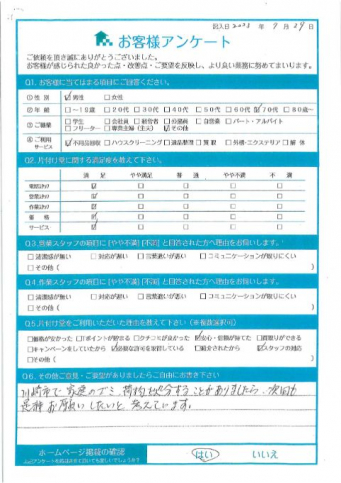 記入日 2023 年 9 月 29 日
お客様アンケート
ご依頼を頂き誠にありがとうございました。
お客様が感じられた良かった点・改善点・ご要望を反映し、より良い業務に努めてまいります。
Q1. お客様に当てはまる項目にご回答ください。
①性 別 ☑男性 □女性
②年 齢 □~18歳 □20代 □30代 □40代 □50代 □60代 ☑70代 □80歳~
③ご職業 □学生 □会社員 □経営者 □公務員 □自営業 □パート・アルバイト
□フリーター □専業主婦（主夫） ☑その他
④ご利用サービス ☑不用品回収 □ハウスクリーニング □遺品整理 □買取 □外構・エクステリア □解体
Q2. 片付け堂に関する満足度を教えて下さい。
満足 やや満足 普通 やや不満 不満
電話スタッフ ☑ □ □ □ □
営業スタッフ ☑ □ □ □ □
作業スタッフ ☑ □ □ □ □
価格 ☑ □ □ □ □
サービス ☑ □ □ □ □
Q3. 営業スタッフの項目に［やや不満］［不満］と回答された方へ理由をお伺いします。
□清潔感が無い □対応が遅い □言葉遣いが悪い □コミュニケーションが取りにくい
□その他（ ）
Q4. 作業スタッフの項目に［やや不満］［不満］と回答された方へ理由をお伺いします。
□清潔感が無い □対応が遅い □言葉遣いが悪い □コミュニケーションが取りにくい
□その他（ ）
Q5. 片付け堂をご利用いただいた理由を教えて下さい（※複数選択可）
□価格が安かった □Tポイントが貯まる □クチコミが良かった ☑安心・信頼が持てた □買取りができる
□キャンペーンをしていたから ☑必要な許可を取得している □紹介されたから ☑スタッフの対応
□その他（ ）
Q6. その他ご意見・ご要望がありましたらご自由にお書き下さい
川崎市で 家庭のゴミ、荷物 処分することがありましたら、次回も
是非お願いしたいと 考えています。
ホームページ掲載の確認
はい いいえ